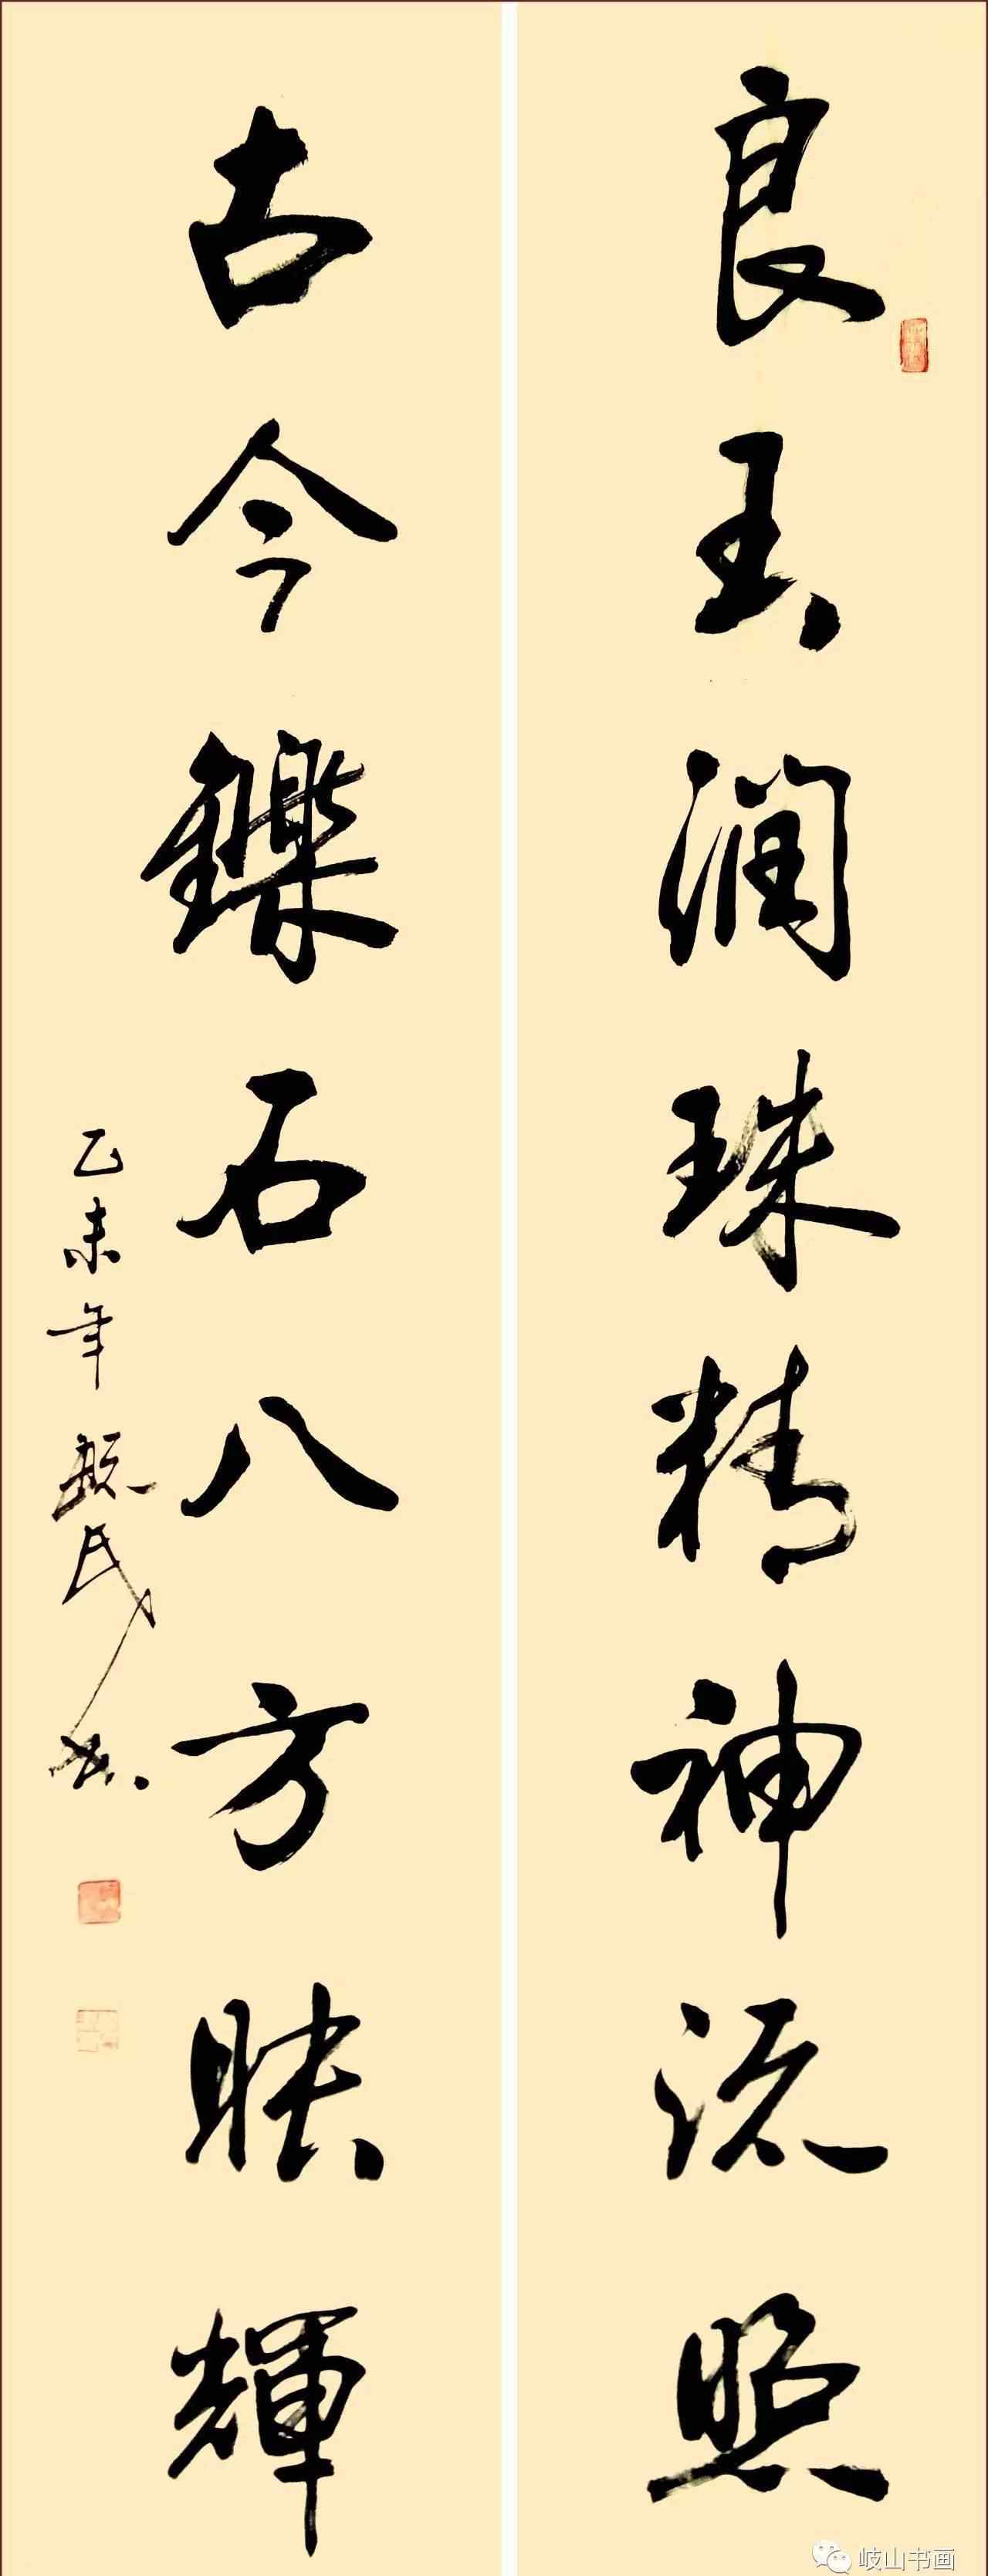 良玉润珠精神流照
古今鑠石八方映輝
乙未年
岐山书画